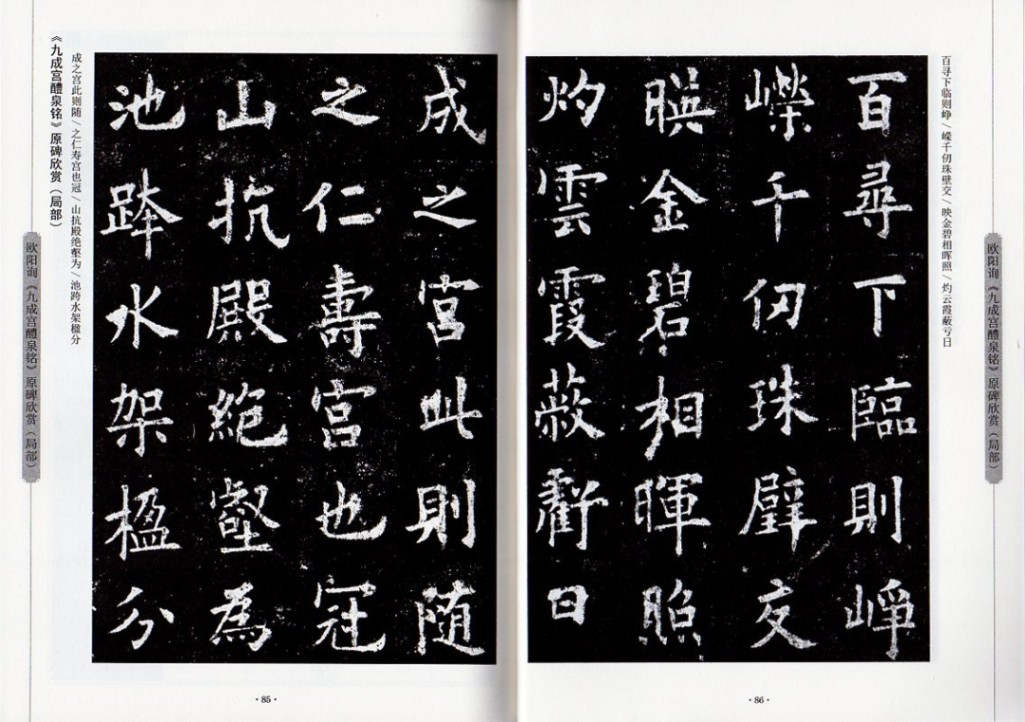 《九成宫醴泉铭》原碑欣赏（局部）
成之宫此则随/之仁寿宫也冠/山抗殿绝壑为/池跨水架楹分
成之宮此則随
之仁壽宮也冠
山抗殿絶壑為
池跨水架楹分
欧阳询《九成宫醴泉铭》原碑欣赏（局部）
- 85 -
百寻下临则峥/嵘千仞珠壁交/映金碧相晖照/灼云霞蔽亏日
百尋下臨則崢
嶸千仞珠壁交
暎金碧相暉照
灼雲霞蔽虧日
欧阳询《九成宫醴泉铭》原碑欣赏（局部）
- 86 -